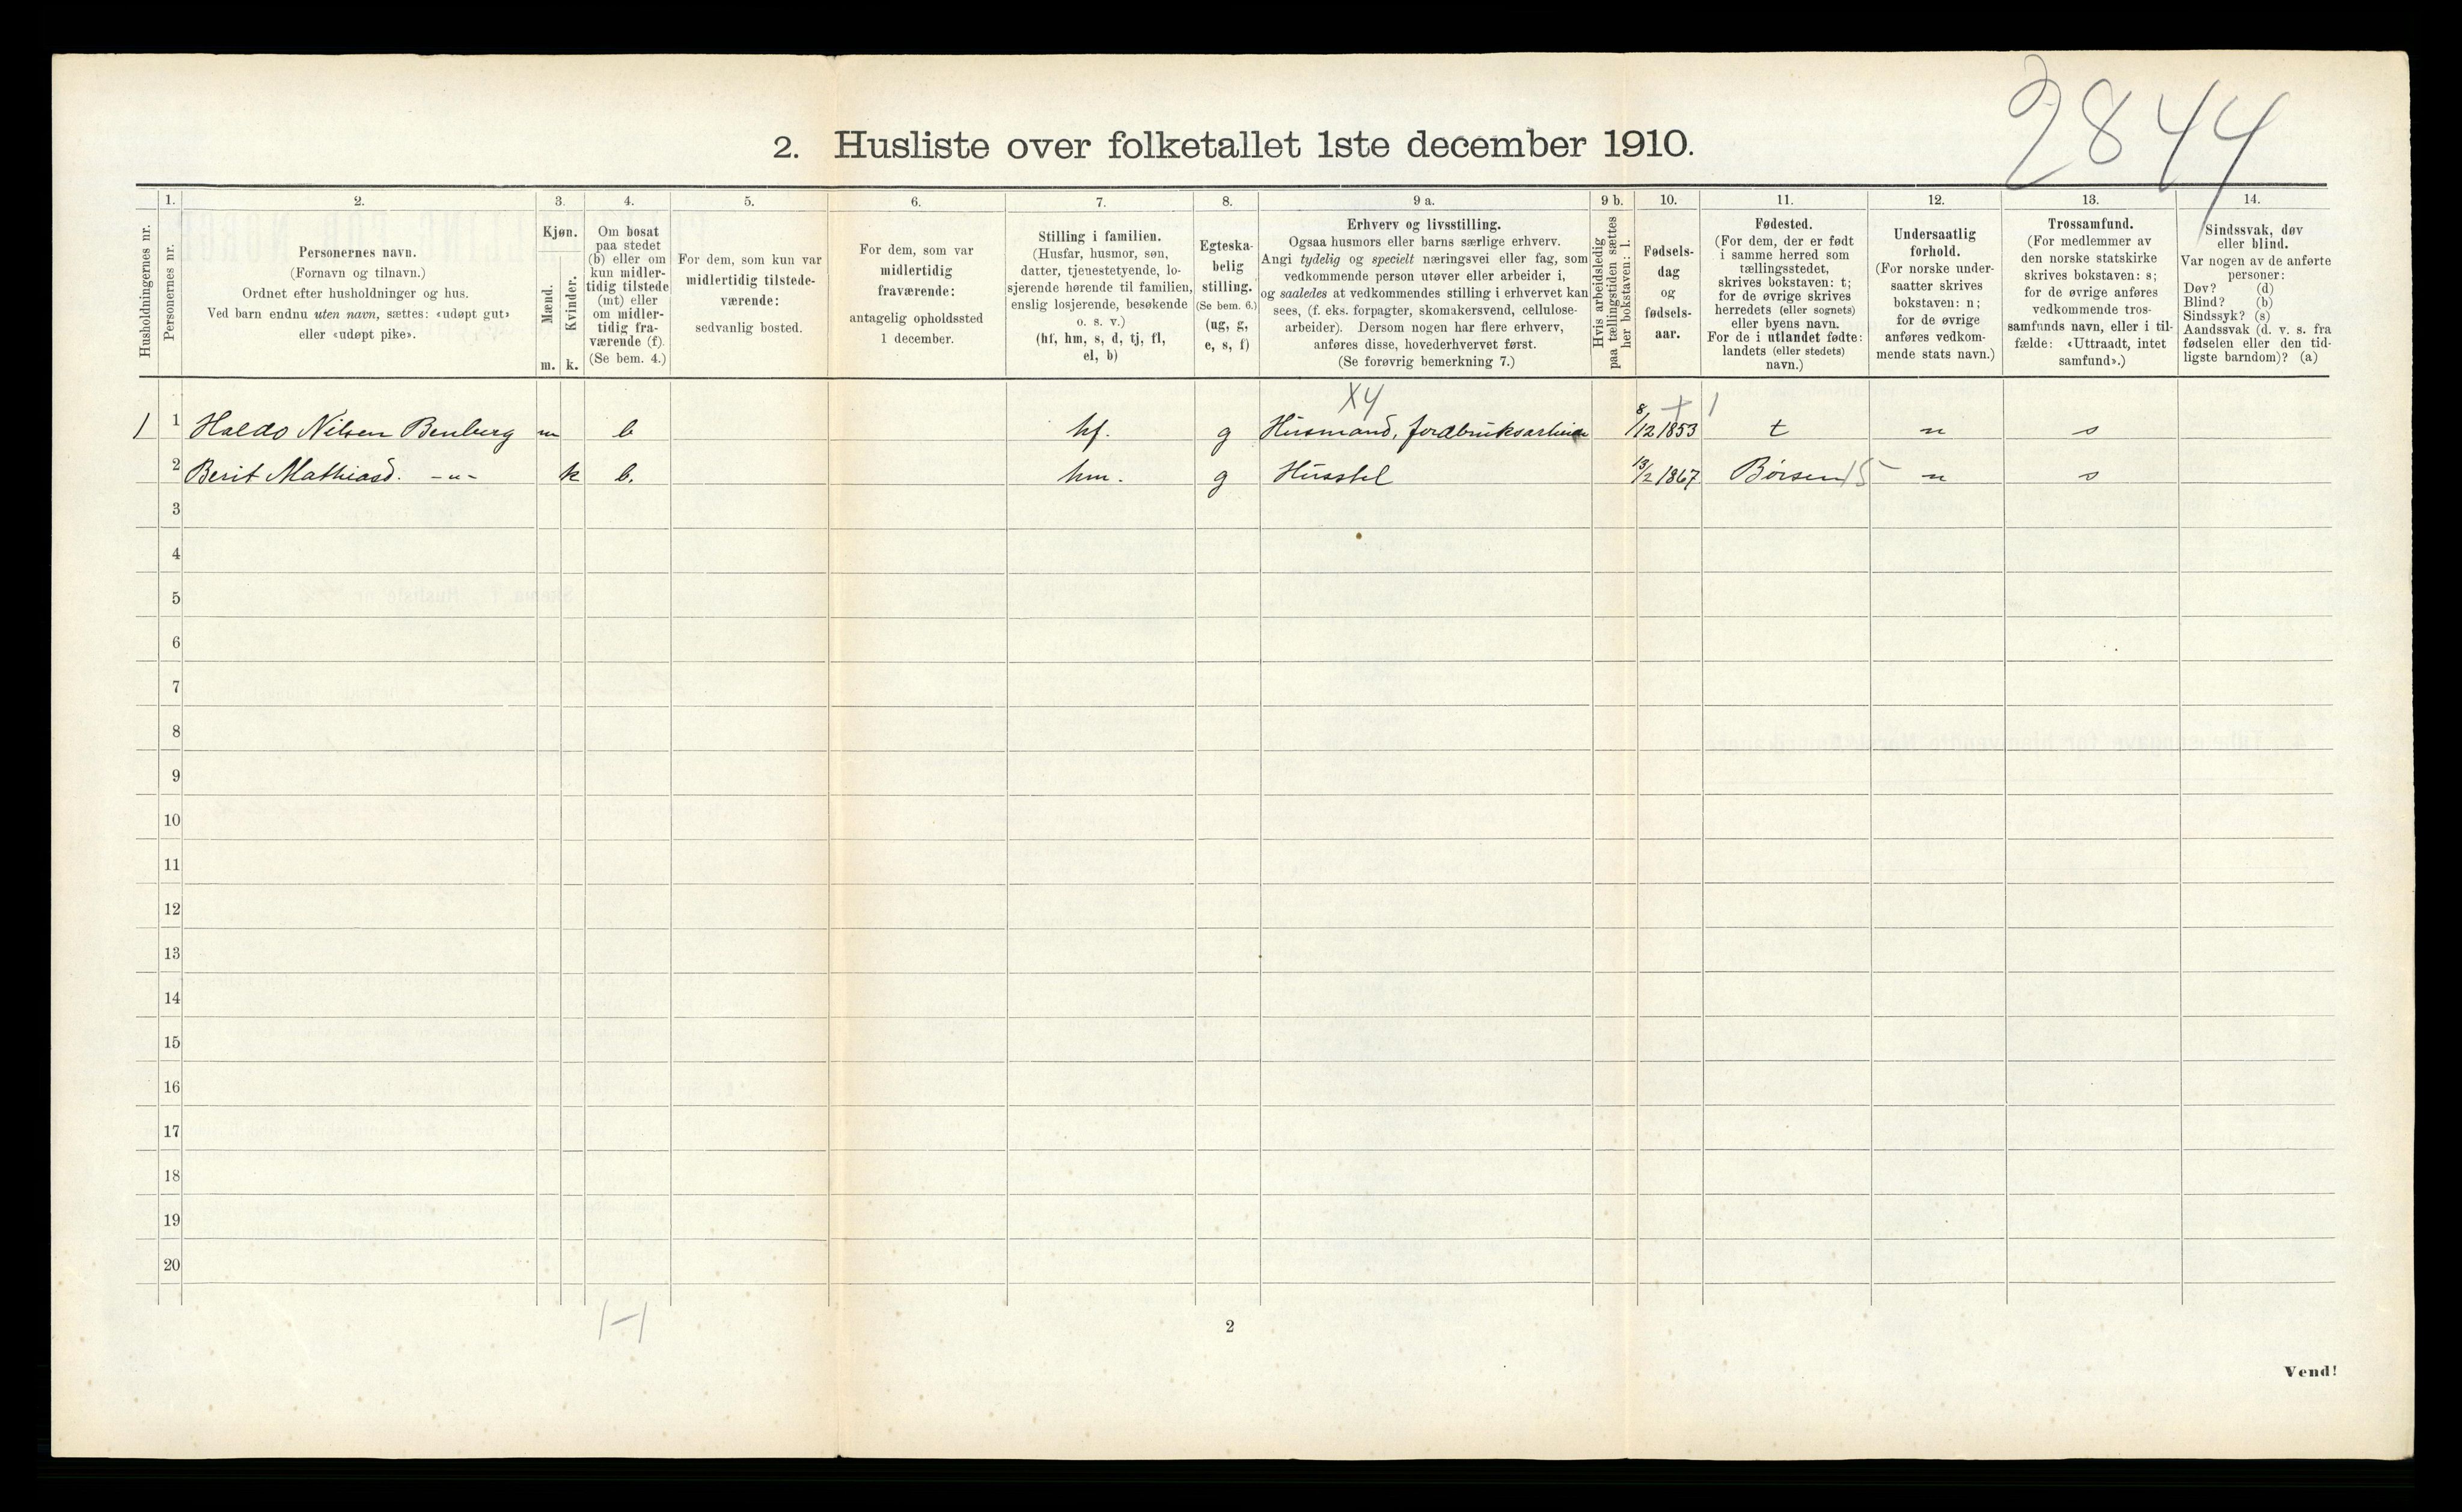 2844
2. Husliste over folketallet 1ste december 1910.
Husholdningernes nr.
1.
Personernes nr.
2.
Personernes navn.
(Fornavn og tilnavn.)
Ordnet efter husholdninger og hus.
Ved barn endnu uten navn, sættes: «udøpt gut»
eller «udøpt pike».
3.
Kjøn.
Mænd.
m.
Kvinder.
k.
4.
Om bosat
paa stedet
(b) eller om
kun midler-
tidig tilstede
(mt) eller
om midler-
tidig fra-
værende (f).
(Se bem. 4.)
5.
For dem, som kun var
midlertidig tilstede-
værende:
sedvanlig bosted.
6.
For dem, som var
midlertidig
fraværende:
antagelig opholdssted
1 december.
7.
Stilling i familien.
(Husfar, husmor, søn,
datter, tjenestetyende, lo-
sjerende hørende til familien,
enslig losjerende, besøkende
o. s. v.)
(hf, hm, s, d, tj, fl,
el, b)
8.
Egteska-
belig
stilling.
(Se bem. 6.)
(ug, g,
e, s, f)
9 a.
Erhverv og livsstilling.
Ogsaa husmors eller barns særlige erhverv.
Angi tydelig og specielt næringsvei eller fag, som
vedkommende person utøver eller arbeider i,
og saaledes at vedkommendes stilling i erhvervet kan
sees, (f. eks. forpagter, skomakersvend, cellulose-
arbeider). Dersom nogen har flere erhverv,
anføres disse, hovederhvervet først.
(Se forøvrig bemerkning 7.)
9 b.
Hvis arbeidsledig
paa tællingstiden sættes
her bokstaven: l.
10.
Fødsels-
dag
og
fødsels-
aar.
11.
Fødested.
(For dem, der er født
i samme herred som
tællingsstedet,
skrives bokstaven: t;
for de øvrige skrives
herredets (eller sognets)
eller byens navn.
For de i utlandet fødte:
landets (eller stedets)
navn.)
12.
Undersaatlig
forhold.
(For norske under-
saatter skrives
bokstaven: n;
for de øvrige
anføres vedkom-
mende stats navn.)
13.
Trossamfund.
(For medlemmer av
den norske statskirke
skrives bokstaven: s;
for de øvrige anføres
vedkommende tros-
samfunds navn, eller i til-
fælde: «Uttraadt, intet
samfund».)
14.
Sindssvak, døv
eller blind.
Var nogen av de anførte
personer:
Døv? (d)
Blind? (b)
Sindssyk? (s)
Aandssvak (d. v. s. fra
fødselen eller den tid-
ligste barndom)? (a)
X4
1 1 Haldo Nilsen Benberg m b hf. g Husmand, jordbruksarbeider 8/12 1853 t n s
2 Berit Mathiasd. -"- k b. hm. g Husstel 13/2 1867 Børsen 15 n s
3
4
5
6
7
8
9
10
11
12
13
14
15
16
17
18
19
20
1-1
2
Vend!